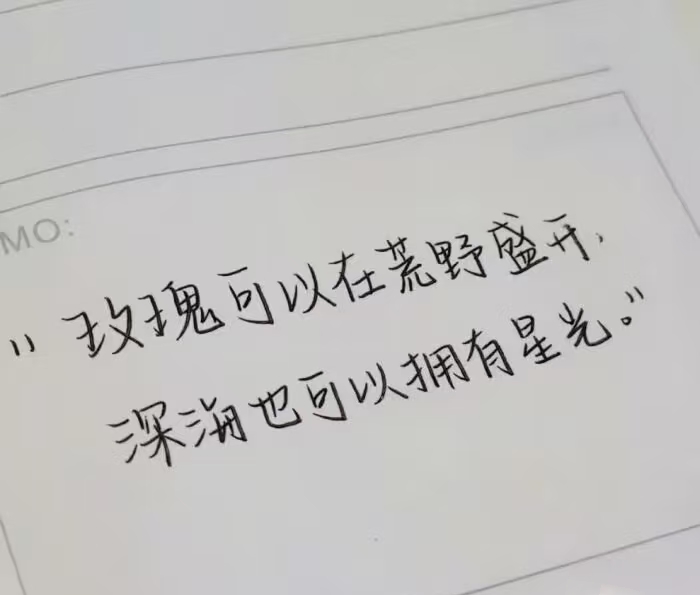 MO:
"玫瑰可以在荒野盛开,
深海也可以拥有星光。"